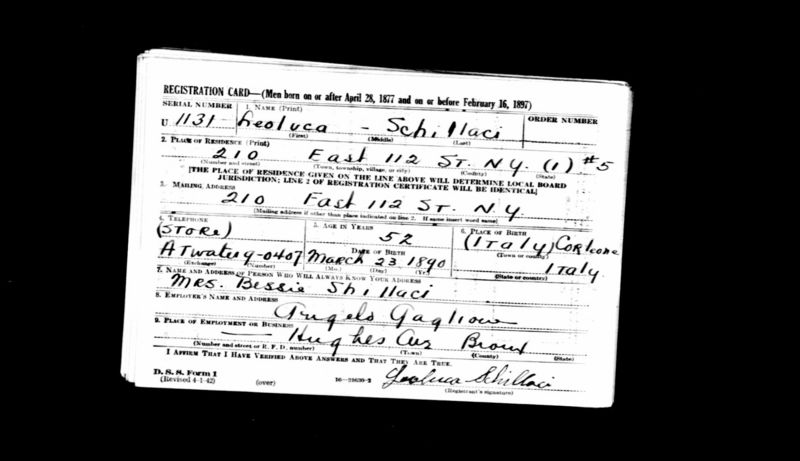 REGISTRATION CARD—(Men born on or after April 28, 1877 and on or before February 16, 1897)
SERIAL NUMBER 1. NAME (Print) ORDER NUMBER
U 1131 Leoluca - Schillaci
(First) (Middle) (Last)
2. PLACE OF RESIDENCE (Print)
210 East 112 ST. N.Y. (1) #5
(Number and street) (Town, township, village, or city) (County) (State)
[THE PLACE OF RESIDENCE GIVEN ON THE LINE ABOVE WILL DETERMINE LOCAL BOARD
JURISDICTION; LINE 2 OF REGISTRATION CERTIFICATE WILL BE IDENTICAL]
3. MAILING ADDRESS
210 East 112 ST. N.Y.
[Mailing address if other than place indicated on line 2. If same insert word same]
4. TELEPHONE 5. AGE IN YEARS 6. PLACE OF BIRTH
(STORE) 52 (ITaly) Corleone
DATE OF BIRTH (Town or county)
ATwater 9-0407 March 23 1890 ITaly
(Exchange) (Number) (Mo.) (Day) (Yr.) (State or country)
7. NAME AND ADDRESS OF PERSON WHO WILL ALWAYS KNOW YOUR ADDRESS
MRS. Bessie Shillaci
8. EMPLOYER'S NAME AND ADDRESS
Angelo
9. PLACE OF EMPLOYMENT OR BUSINESS
— Hughes Ave Bronx
(Number and street or R. F. D. number) (Town) (County) (State)
I AFFIRM THAT I HAVE VERIFIED ABOVE ANSWERS AND THAT THEY ARE TRUE.
D. S. S. Form 1
(Revised 4-1-42) (over) 16—21630-2 Leoluca Schillaci
(Registrant's signature)